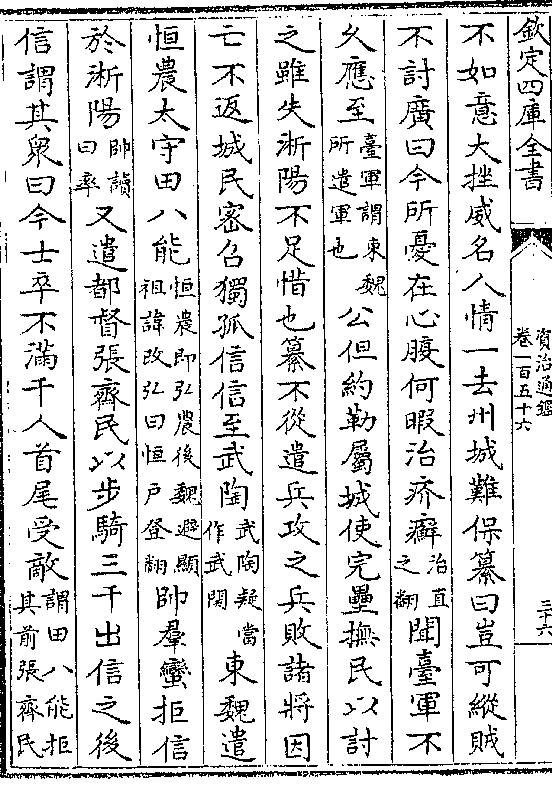 欽定四庫全書
資治通鑑
卷一百五十六
三十六
不如意大挫威名人情一去州城難保纂曰豈可縱賊
不討廣曰今所憂在心腹何暇治疥癬治直之翻聞臺軍不
久應至臺軍謂東魏所遣軍也公但約勒屬城使完壘撫民以討
之雖失淅陽不足惜也纂不從遣兵攻之兵敗諸將因
亡不返城民密召獨孤信信至武陶武陶疑當作武關東魏遣
恒農太守田八能恒農即弘農後魏避顯祖諱改弘曰恒戶登翻帥羣蠻拒信
於淅陽帥讀曰率又遣都督張齊民以步騎三千出信之後
信謂其衆曰今士卒不滿千人首尾受敵謂田八能拒其前張齊民